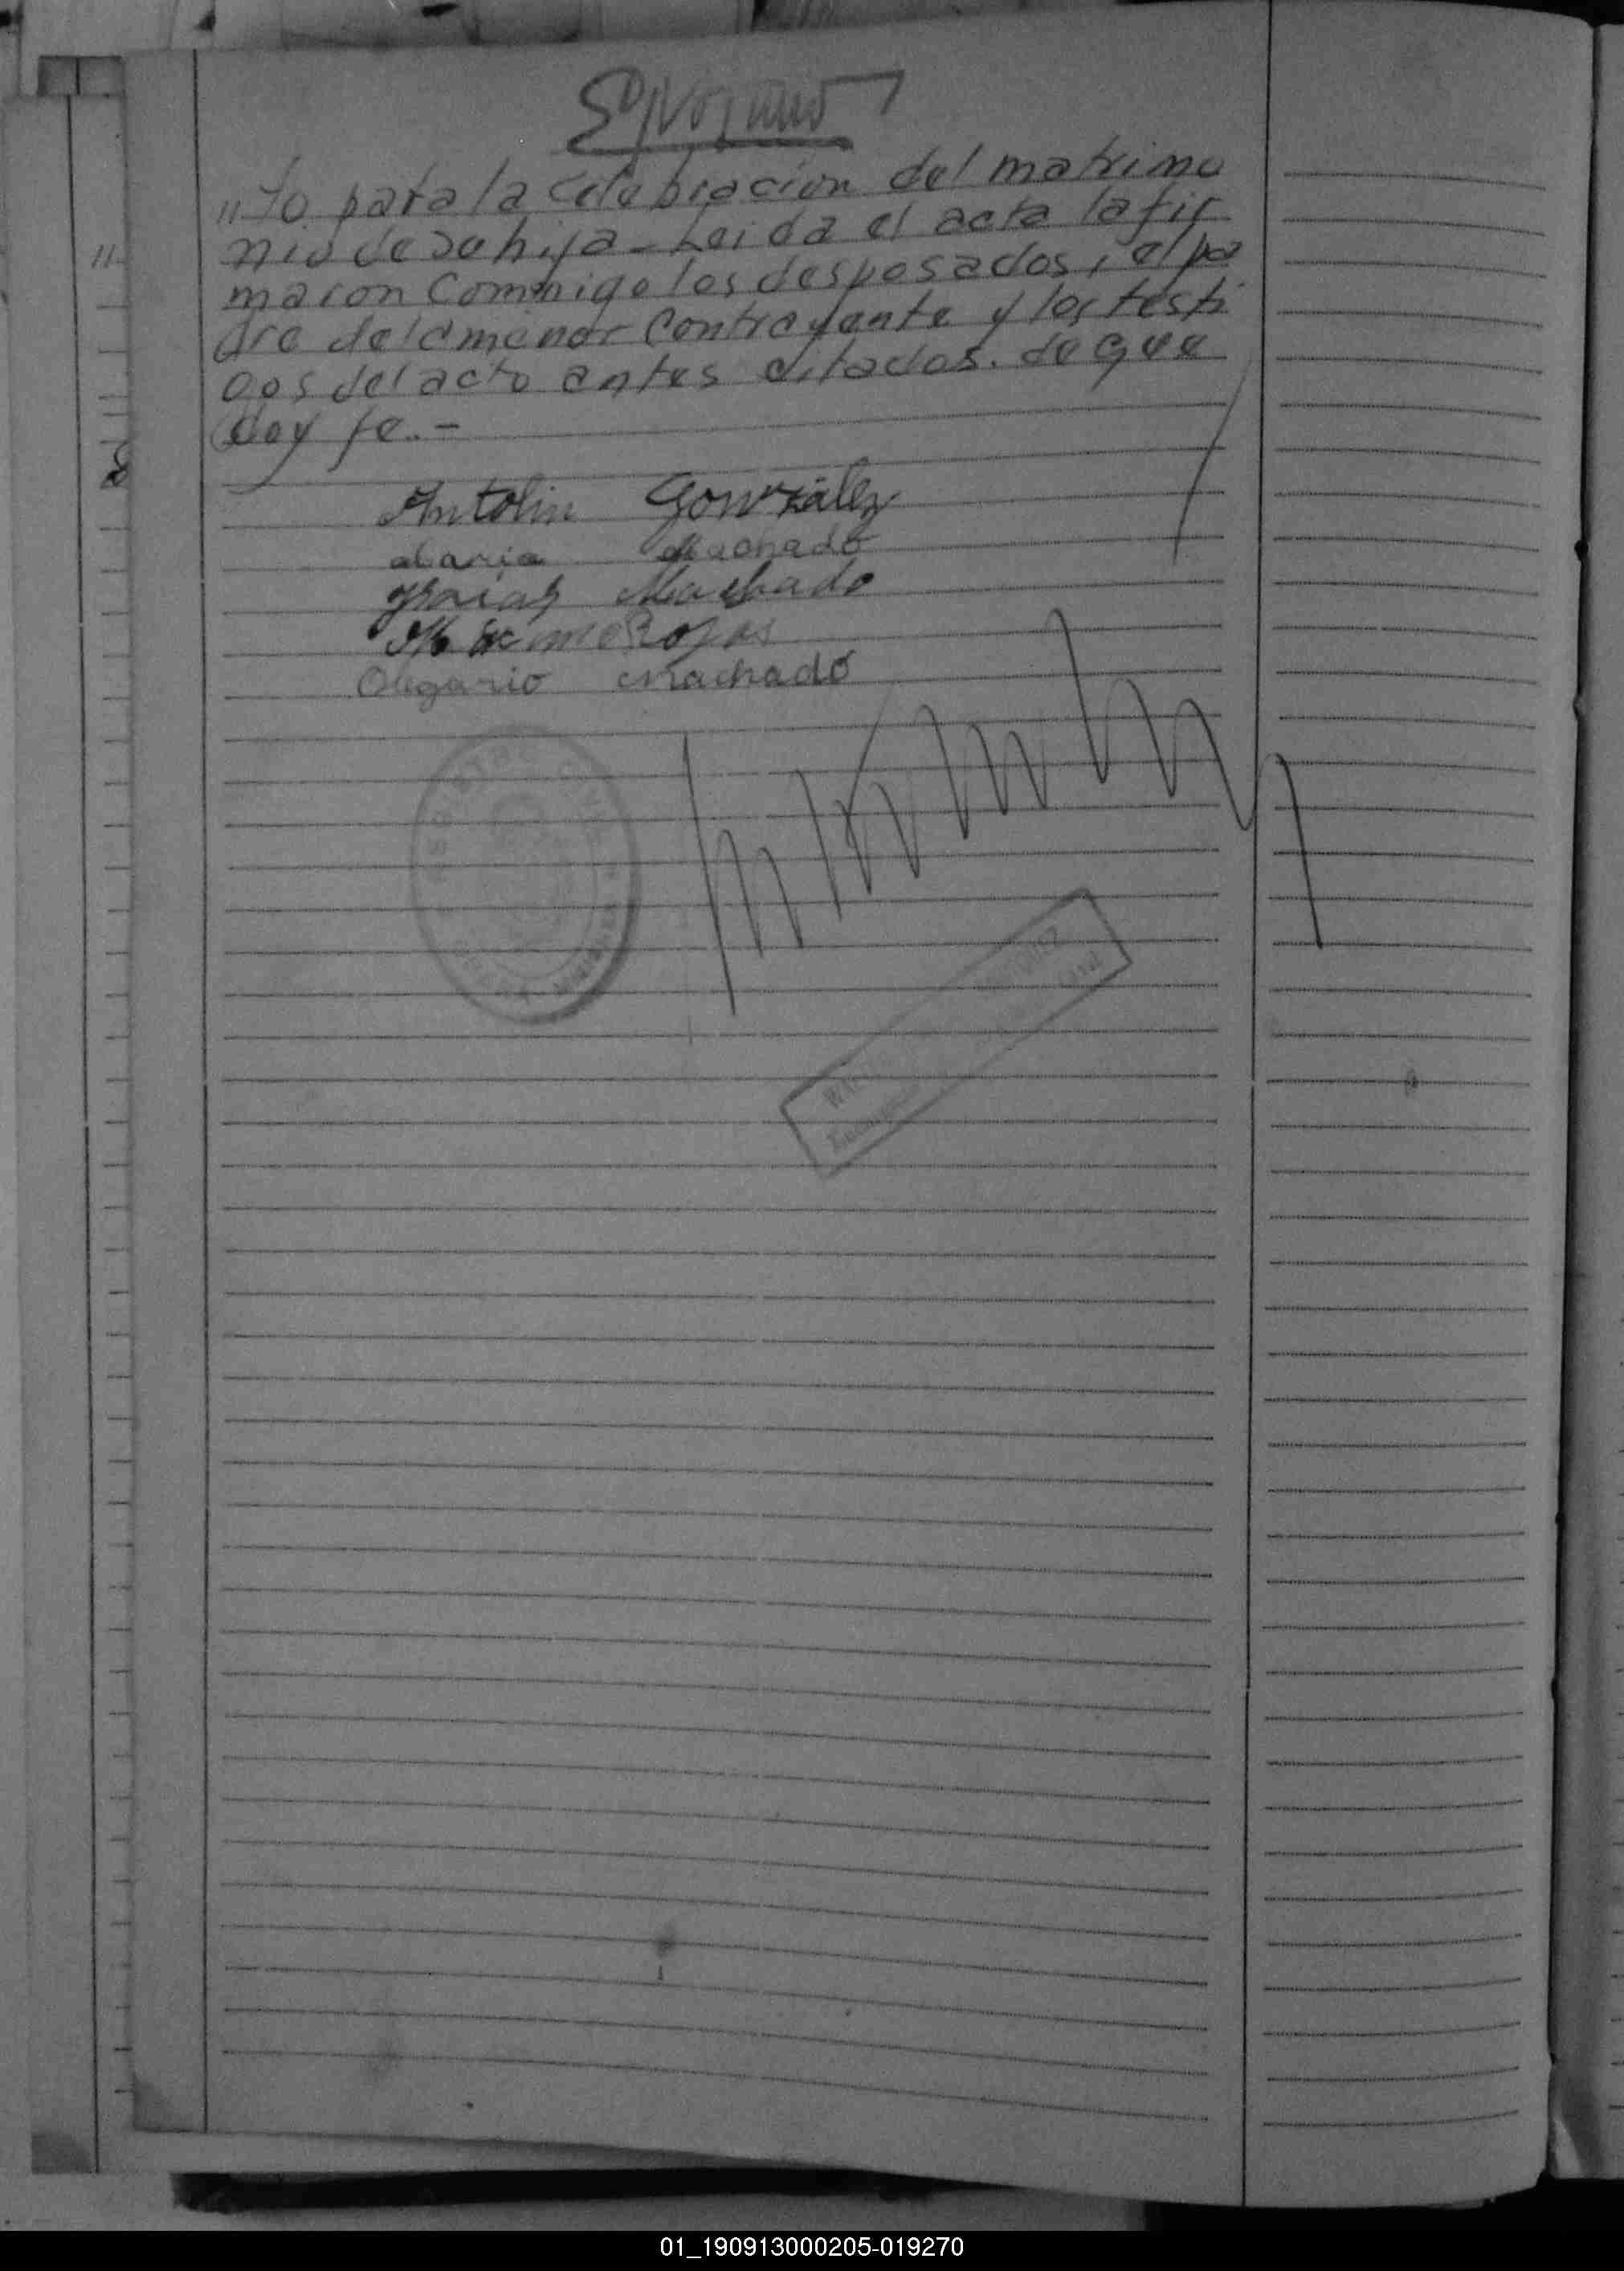 "to para la celebracion del matrimo
nio de su hija - Leida el acta la fir
maron Commigo los desposados, el pa
dre de la menor Contrayente y los testi
gos del acto antes citados. de que
doy fe. -
Antolin González
Maria Machado
Ysaias Machado
Maximo Rojas
Olegario Machado
REGISTRO CIVIL
01_190913000205-019270